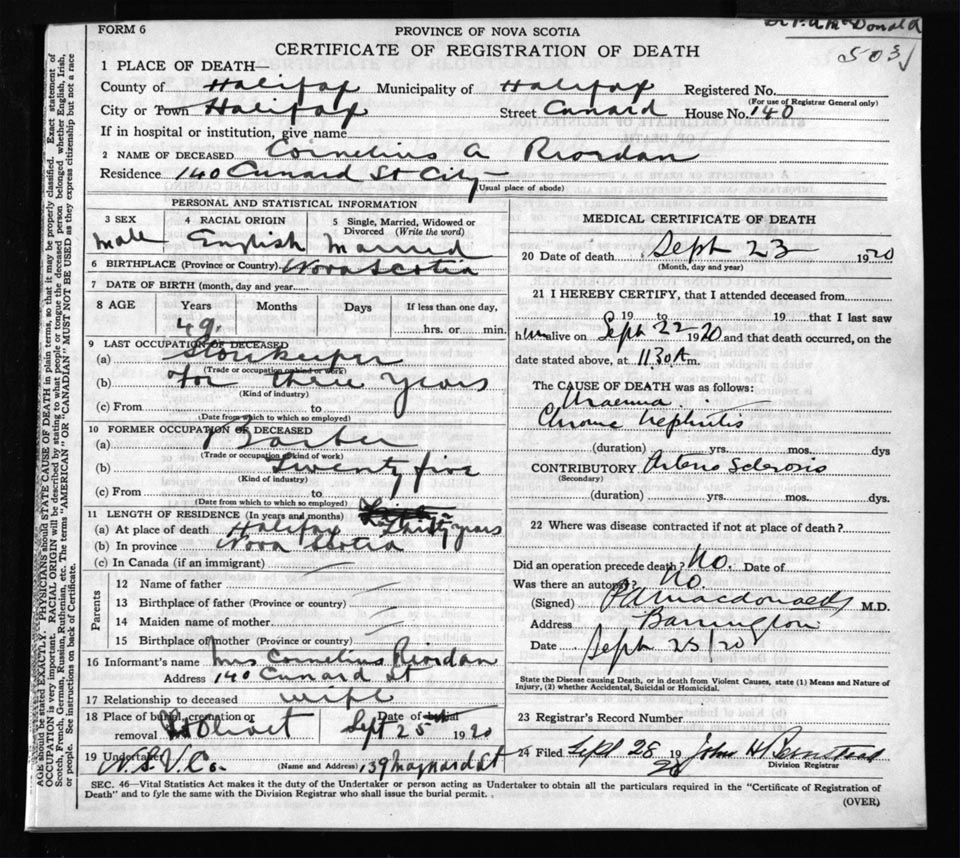 FORM 6
PROVINCE OF NOVA SCOTIA
Donald
CERTIFICATE OF REGISTRATION OF DEATH
1 PLACE OF DEATH—
County of Halifax Municipality of Halifax Registered No.
(For use of Registrar General only)
City or Town Halifax Street Cunard House No. 140
If in hospital or institution, give name
2 NAME OF DECEASED Cornelius A Riordan
Residence 140 Cunard St City
(Usual place of abode)
PERSONAL AND STATISTICAL INFORMATION
3 SEX 4 RACIAL ORIGIN 5 Single, Married, Widowed or Divorced (Write the word)
male English Married
6 BIRTHPLACE (Province or Country) Nova Scotia
7 DATE OF BIRTH (month, day and year)
8 AGE Years Months Days If less than one day,
49 hrs. or min.
9 LAST OCCUPATION OF DECEASED
(a) Storekeeper
(Trade or occupation or kind of work)
(b) For three years
(Kind of industry)
(c) From to
(Date from which to which so employed)
10 FORMER OCCUPATION OF DECEASED
(a) Barber
(Trade or occupation or kind of work)
(b) Twenty five
(Kind of industry)
(c) From to
(Date from which to which so employed)
11 LENGTH OF RESIDENCE (In years and months)
(a) At place of death Halifax Thirty years
(b) In province Nova Scotia
(c) In Canada (if an immigrant)
Parents
12 Name of father
13 Birthplace of father (Province or country)
14 Maiden name of mother
15 Birthplace of mother (Province or country)
16 Informant's name Mrs Cornelius Riordan
Address 140 Cunard St
17 Relationship to deceased wife
18 Place of burial, cremation or Date of burial
removal Mt Olivet Sept 25 1920
19 Undertaker N.S.U.Co. 139 Maynard St
(Name and Address)
MEDICAL CERTIFICATE OF DEATH
20 Date of death Sept 23 1920
(Month, day and year)
21 I HEREBY CERTIFY, that I attended deceased from
19 to 19 that I last saw
him alive on Sept 22 1920 and that death occurred, on the
date stated above, at 1130 A m.
The CAUSE OF DEATH was as follows:
Uraemia
Chronic Nephritis
(duration) yrs. mos. dys
CONTRIBUTORY Arterio Sclerosis
(Secondary)
(duration) yrs. mos. dys.
22 Where was disease contracted if not at place of death?
Did an operation precede death? No. Date of
Was there an autopsy? No
(Signed) Macdonald M.D.
Address Barrington
Date Sept 25/20
State the Disease causing Death, or in death from Violent Causes, state (1) Means and Nature of
Injury, (2) whether Accidental, Suicidal or Homicidal.
23 Registrar's Record Number
24 Filed Sept 28 1920 John H
Division Registrar
SEC. 46—Vital Statistics Act makes it the duty of the Undertaker or person acting as Undertaker to obtain all the particulars required in the "Certificate of Registration of
Death" and to fyle the same with the Division Registrar who shall issue the burial permit.
(OVER)
AGE should be stated EXACTLY. PHYSICIANS should STATE CAUSE OF DEATH in plain terms, so that it may be properly classified. Exact statement of
OCCUPATION is very important. RACIAL ORIGIN will be described by stating to what people or tongue the deceased person belonged whether English, Irish,
Scotch, French, German, Russian, Ruthenian, etc. The terms "AMERICAN" OR "CANADIAN" MUST NOT BE USED as they express citizenship but not a race
or people. See instructions on back of Certificate.